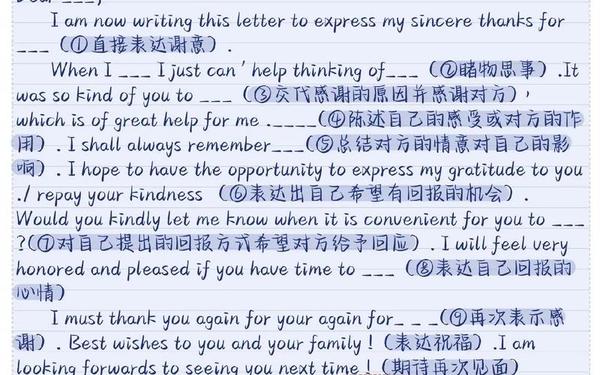 Dear ___,
I am now writing this letter to express my sincere thanks for
___ (①直接表达谢意).
When I ___ I just can't help thinking of___ (②睹物思事).It
was so kind of you to ___ (③交代感谢的原因并感谢对方),
which is of great help for me ._____(④陈述自己的感受或对方的作
用). I shall always remember___(⑤总结对方的情意对自己的影
响). I hope to have the opportunity to express my gratitude to you
./ repay your kindness (⑥表达出自己希望有回报的机会).
Would you kindly let me know when it is convenient for you to ___
?(⑦对自己提出的回报方式希望对方给予回应). I will feel very
honored and pleased if you have time to ___ (⑧表达自己回报的
心情)
I must thank you again for your again for_ _ _(⑨再次表示感
谢). Best wishes to you and your family!(表达祝福).I am
looking forwards to seeing you next time!(期待再次见面)